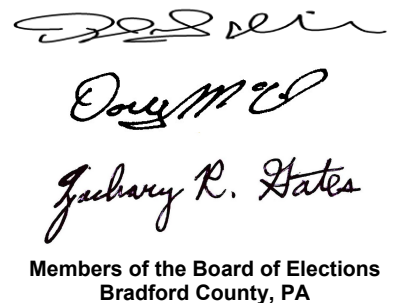 Doug McL
Zachary R. Gates
Members of the Board of Elections
Bradford County, PA